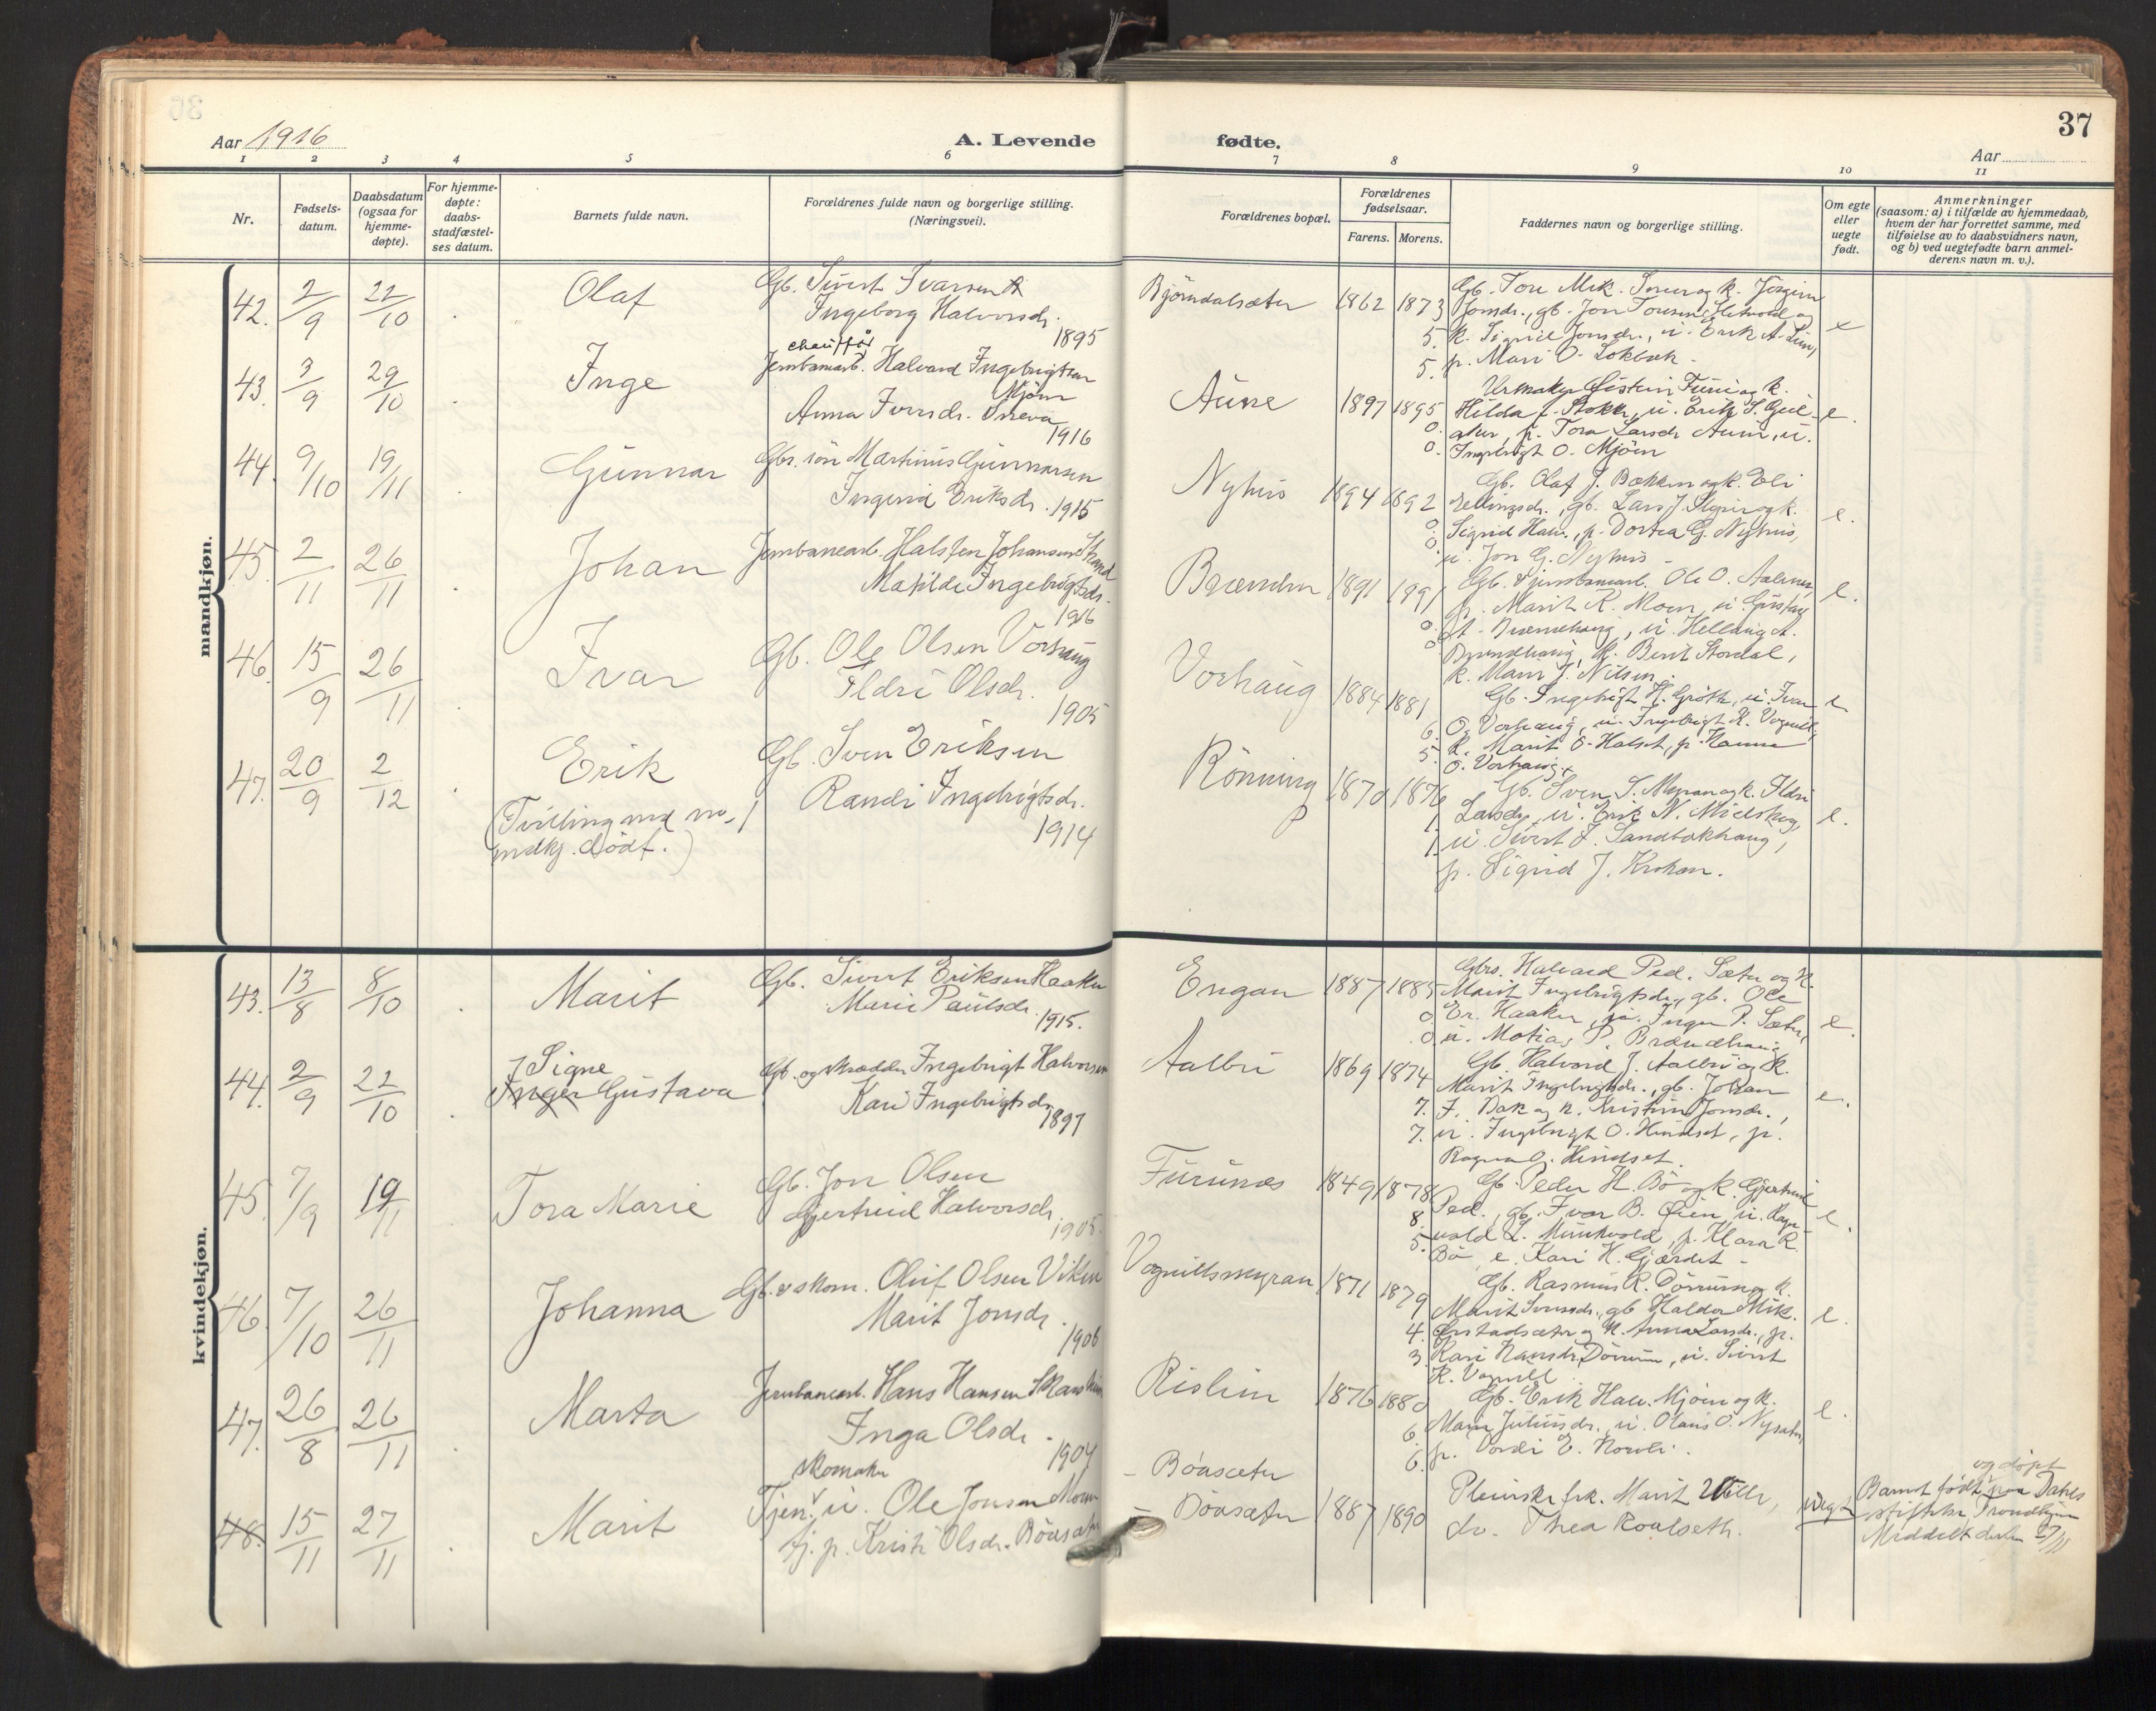 37
Aar 1916
A. Levende
fødte.
Aar
1 2 3 4 5 6 7 8 9 10 11
Nr.
Fødsels-
datum.
Daabsdatum
(ogsaa for
hjemme-
døpte).
For hjemme-
døpte:
daabs-
stadfæstel-
ses datum.
Barnets fulde navn.
Forældrenes fulde navn og borgerlige stilling.
(Næringsvei).
Forældrenes bopæl.
Forældrenes
fødselsaar.
Farens. Morens.
Faddernes navn og borgerlige stilling.
Om egte
eller
uegte
født.
Anmerkninger
(saasom: a) i tilfælde av hjemmedaab,
hvem der har forrettet samme, med
tilføielse av to daabsvidners navn,
og b) ved uegtefødte barn anmel-
derens navn m. v.).
mandkjøn.
42. 2/9 22/10 Olaf
Gb. Sivert Ivarsen
Ingeborg Halvorsdr.
1895
Bjørndalsæter 1862 1873
5.
5.
Gb. Tore Mek. og k. Jørgine
Jonsdr., gb. Jon og
k. Sigrid Jonsdr., u. Erik A. Lien,
p. Mari O. Lokbæk
43. 3/9 29/10 Inge
chauffør
Jernbanearb. Halvard Ingebrigtsen
Mjøen
Anna Iversdr. Sneva
1916
Aune 1897 1895 e.
0.
0.
Urmaker Øistein Furu og k.
Hilda f. Stokke, u. Erik S. Gul-
aker, p. Tora Larsdr. Aune, u.
Ingebrigt O. Mjøen
44. 9/10 19/11 Gunnar
Gbr. søn Martinus Gunnarsen
Ingerid Eriksdr. 1915
Nyhus 1894 1892 e.
0.
0.
Gb. Olaf J. Bakken og k. Eli
Ellingsdr., gb. Lars J. og k.
Sigrid Halv., p. Dortea G. Nyhus,
u. Jon G. Nyhus
45. 2/11 26/11 Johan
Jernbanearb. Halsten Johansen Strand
Matilde Ingebrigtsdr.
1916
Brænden 1891 1891 e.
0.
0.
Gb. & jernbanearb. Ole O. Aalenes,
p. Marit K. Moen, u. Gustav
A. Brændhaug, u. Helling A.
Brændhaug, k. Berit Stordal,
k. Mari J. Nilsen.
46. 15/9 26/11 Ivar
Gb. Ole Olsen Vorhaug
Ildri Olsdr.
1905
Vorhaug 1884 1881 e
6.
5.
Gb. Ingebrigt H. Grøtte, u. Ivar
O. Vorhaug, u. Ingebrigt K. Vognill,
k. Marit O. Halset, p. Hanna
O. Vorhaug
47. 20/9 2/12 Erik
(Tvilling med no.
mdkj. død f.)
Gb. Sven Eriksen
Randi Ingebrigtsdr.
1914
Rønning 1870 1876 e.
1.
1.
Gb. Sven S. Myran og k. Ildri
Larsdr., u. Erik N. Mielskog,
u. Sivert F. Sandbækhaug,
p. Sigrid J. Krokan.
kvindekjøn.
43. 13/8 8/10 Marit
Gb. Sivert Eriksen Haaker
Marie Paulsdr.
1915.
Engan 1887 1885 e.
0
0
Gbrs. Halvard Ped. Sæter og k.
Marit Ingebrigtsdr., gb. Ole
Er. Haaker, p. Inger P. Sæter,
u. Matias P. Brændhaug
44. 2/9 22/10 Signe
Inger Gustava
Gb. og skrædder Ingebrigt Halvorsen
Kari Ingebrigtsdr.
1897
Aalbu 1869 1874 e.
7.
7.
Gb. Halvord J. Aalbu og k.
Marit Ingebrigtsdr., gb. Johan
F. Bak og k. Kristine Jonsdr.,
u. Ingebrigt O. Hindset, p.
Ragna O. Hindset.
45. 7/9 19/11 Tora Marie
Gb. Jon Olsen
Gjertrud Halvorsdr.
1905.
Furunes 1849 1878 e.
8.
5.
Gb. Peder H. Bø og k. Gjertrud
Ped., gb. Ivar B. Øien, u. Ragn-
vald L. Munkvold, p. Klara R.
Bø, e. Kari H. Gjærdet.
46. 7/10 26/11 Johanna
Gb. & skom. Oluf Olsen Viken
Marit Jonsdr.
1906
Vognillsmyran 1871 1879 e.
4.
3.
Gb. Rasmus R. Dørrum og k.
Marit Iversdr., gb. Haldor Mik.
Ørstadsæter og k. Anna Larsdr., p.
Kari Hansdr. Dørrum, u. Sivert
K. Vognill
47. 26/8 26/11 Marta
Jernbanearb. Hans Hansen
Inga Olsdr.
1904
Rislien 1876 1880 e.
6.
6.
Gb. Erik Halv. Mjøen og k.
Mari Juliusdr., u. Olaus O. Nysæter,
p. Vordi E. Horvli.
48. 15/11 27/11 Marit
skomaker
Tjen. u. Ole Jonsen Moen
tj. p. Kristi Olsdr. Bøasæter
Bøasæter
Bøasæter 1887 1890
Pleierske frk. Marit
do. Thea Roalseth.
uegte
og døpt
Barnet født paa Dahls
stiftelse, Trondhjem
Meddelt derfra 27/11